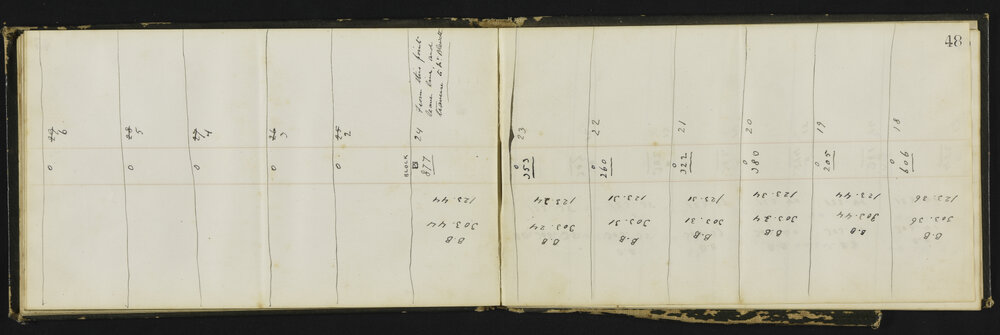 48
18
0
606
123.36
303.36
B.B
19
0
205
123.44
303.44
B.B
20
0
380
123.34
303.34
B.B
21
0
322
123.31
303.31
B.B
22
0
260
123.31
303.31
B.B
23
0
353
123.24
303.24
B.B
24 From this point
leave line, and
traverse to
BLOCK
877
123.44
303.44
B.B
25
2
0
26
3
0
27
4
0
28
5
0
29
6
0